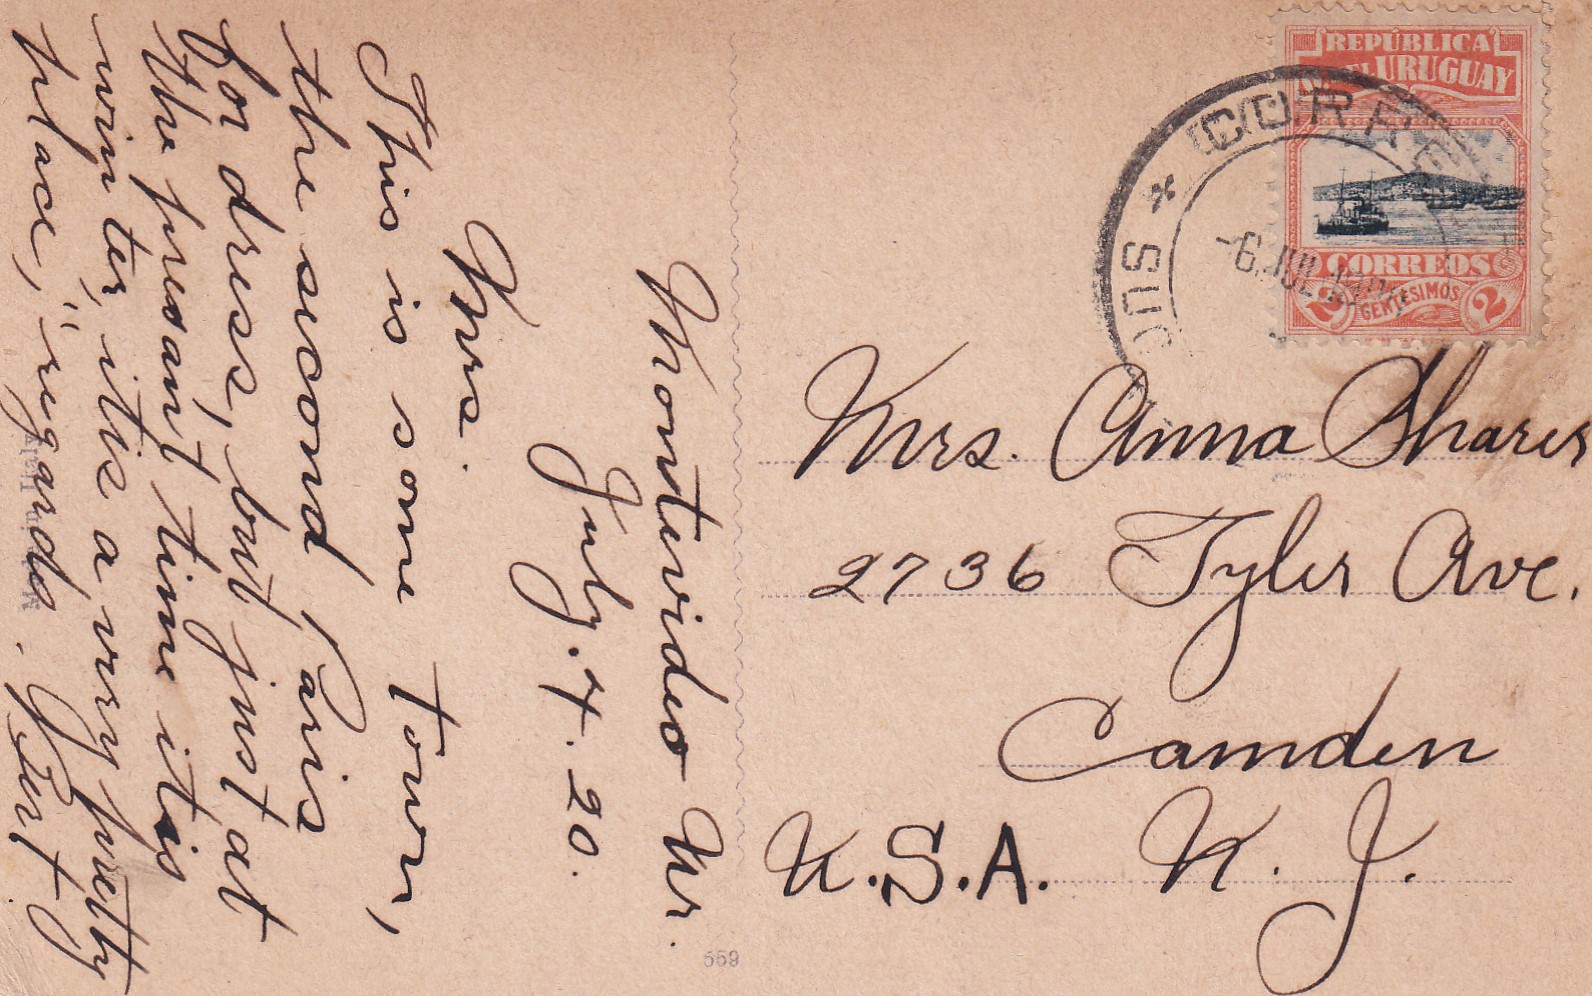 Montevideo Ur.
July. 4. 20.
Mrs.
This is some town,
the second Paris
for dress, but just at
the presant time itis
winter, itis a very pretty
place, regards. Burt.
REPÚBLICA
DEL URUGUAY
CORREOS
2 CENTESIMOS 2
* CORREOS
SUC
6 JUL
Mrs. Anna Sharer
2736 Tyler Ave.
Camden
U.S.A. N. J.
559